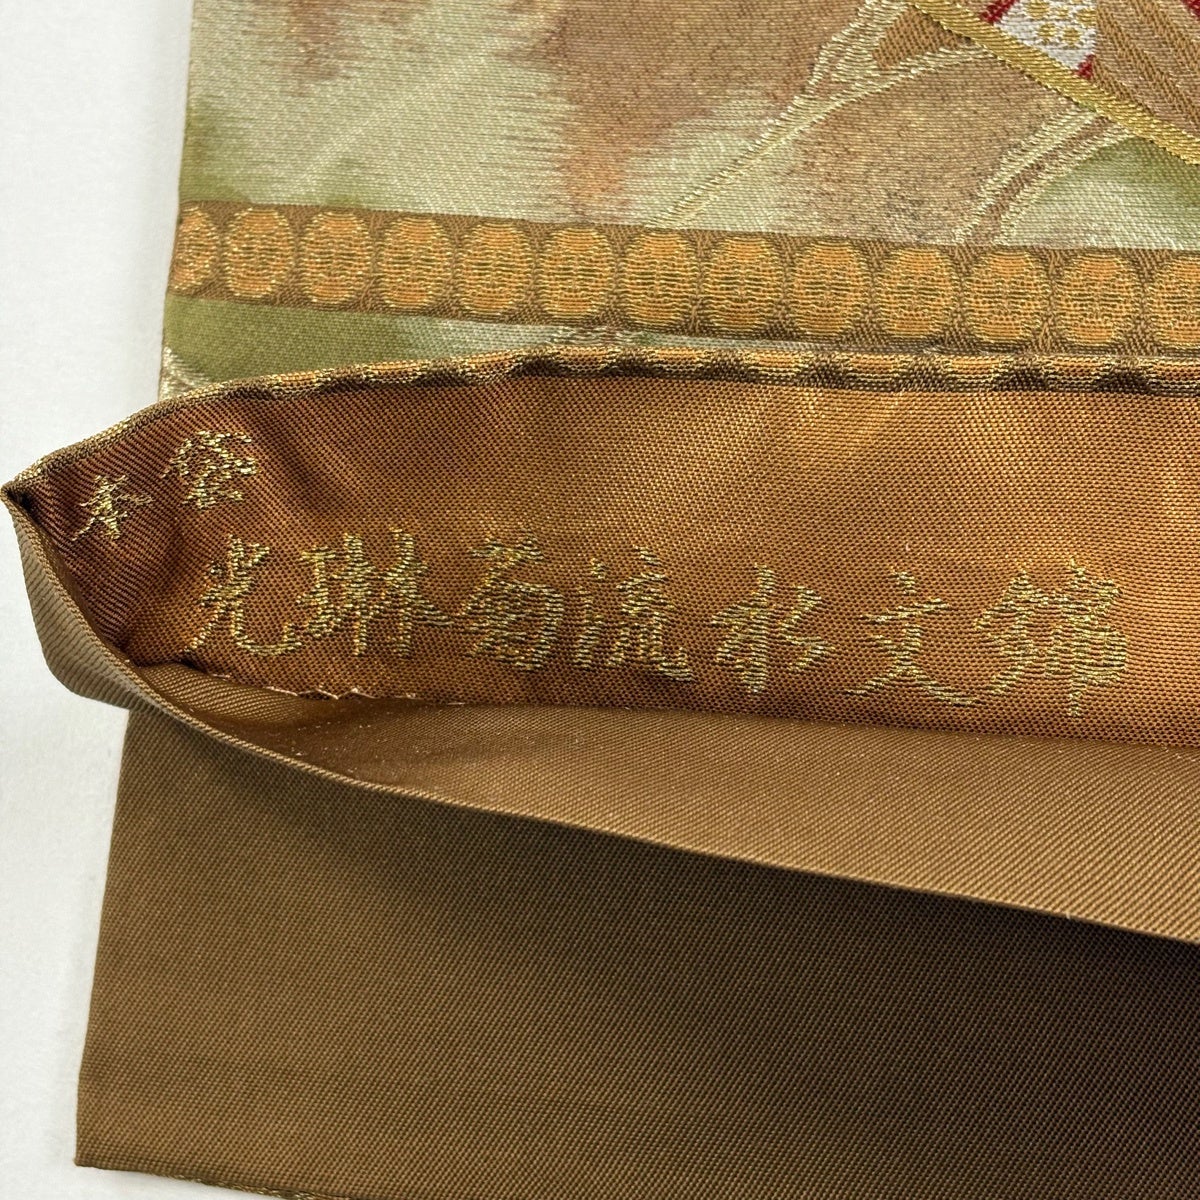 本袋
光琳菊流水文錦